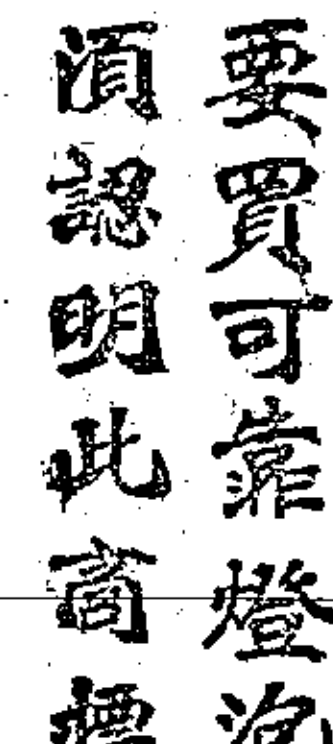 要買可靠燈泡
須認明此商標